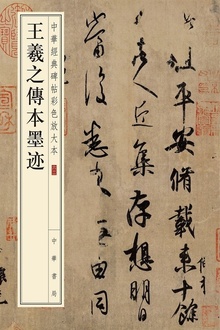 中華經典碑帖彩色放大本
王羲之傳本墨迹
中華書局
粗平安脩載來十餘
諸人近集存想明日
當復悉來無由同